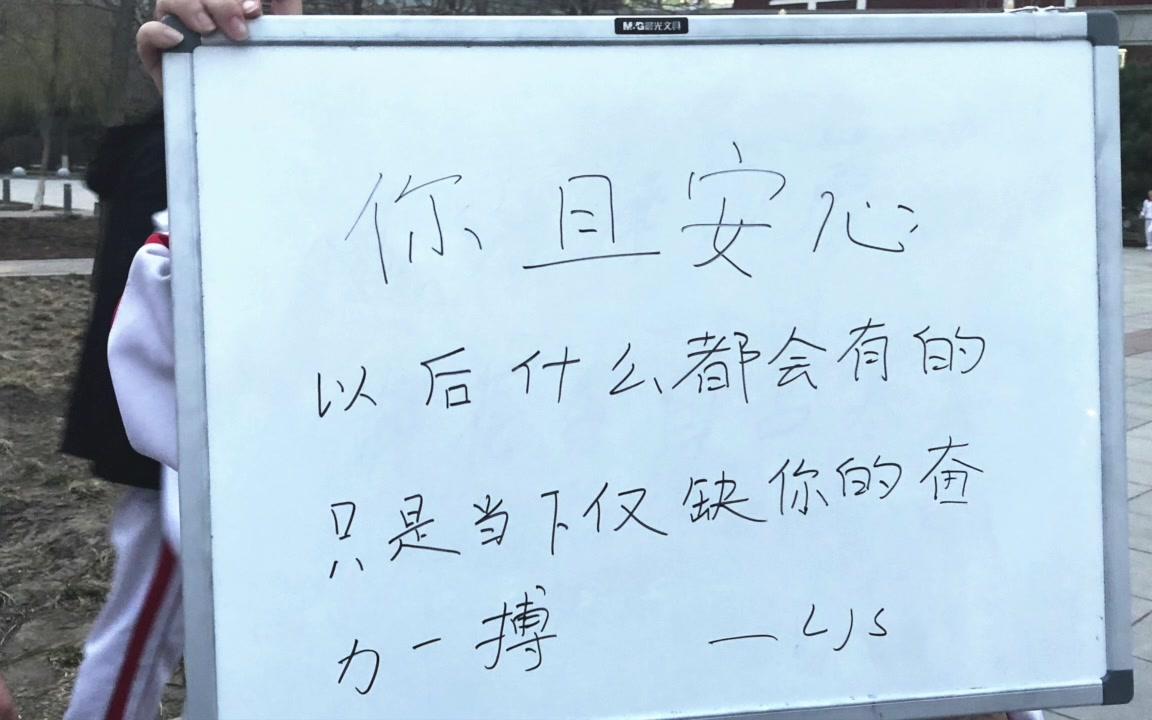 M&G晨光文具
你且安心
以后什么都会有的
只是当下仅缺你的奋
力一搏 —LJS